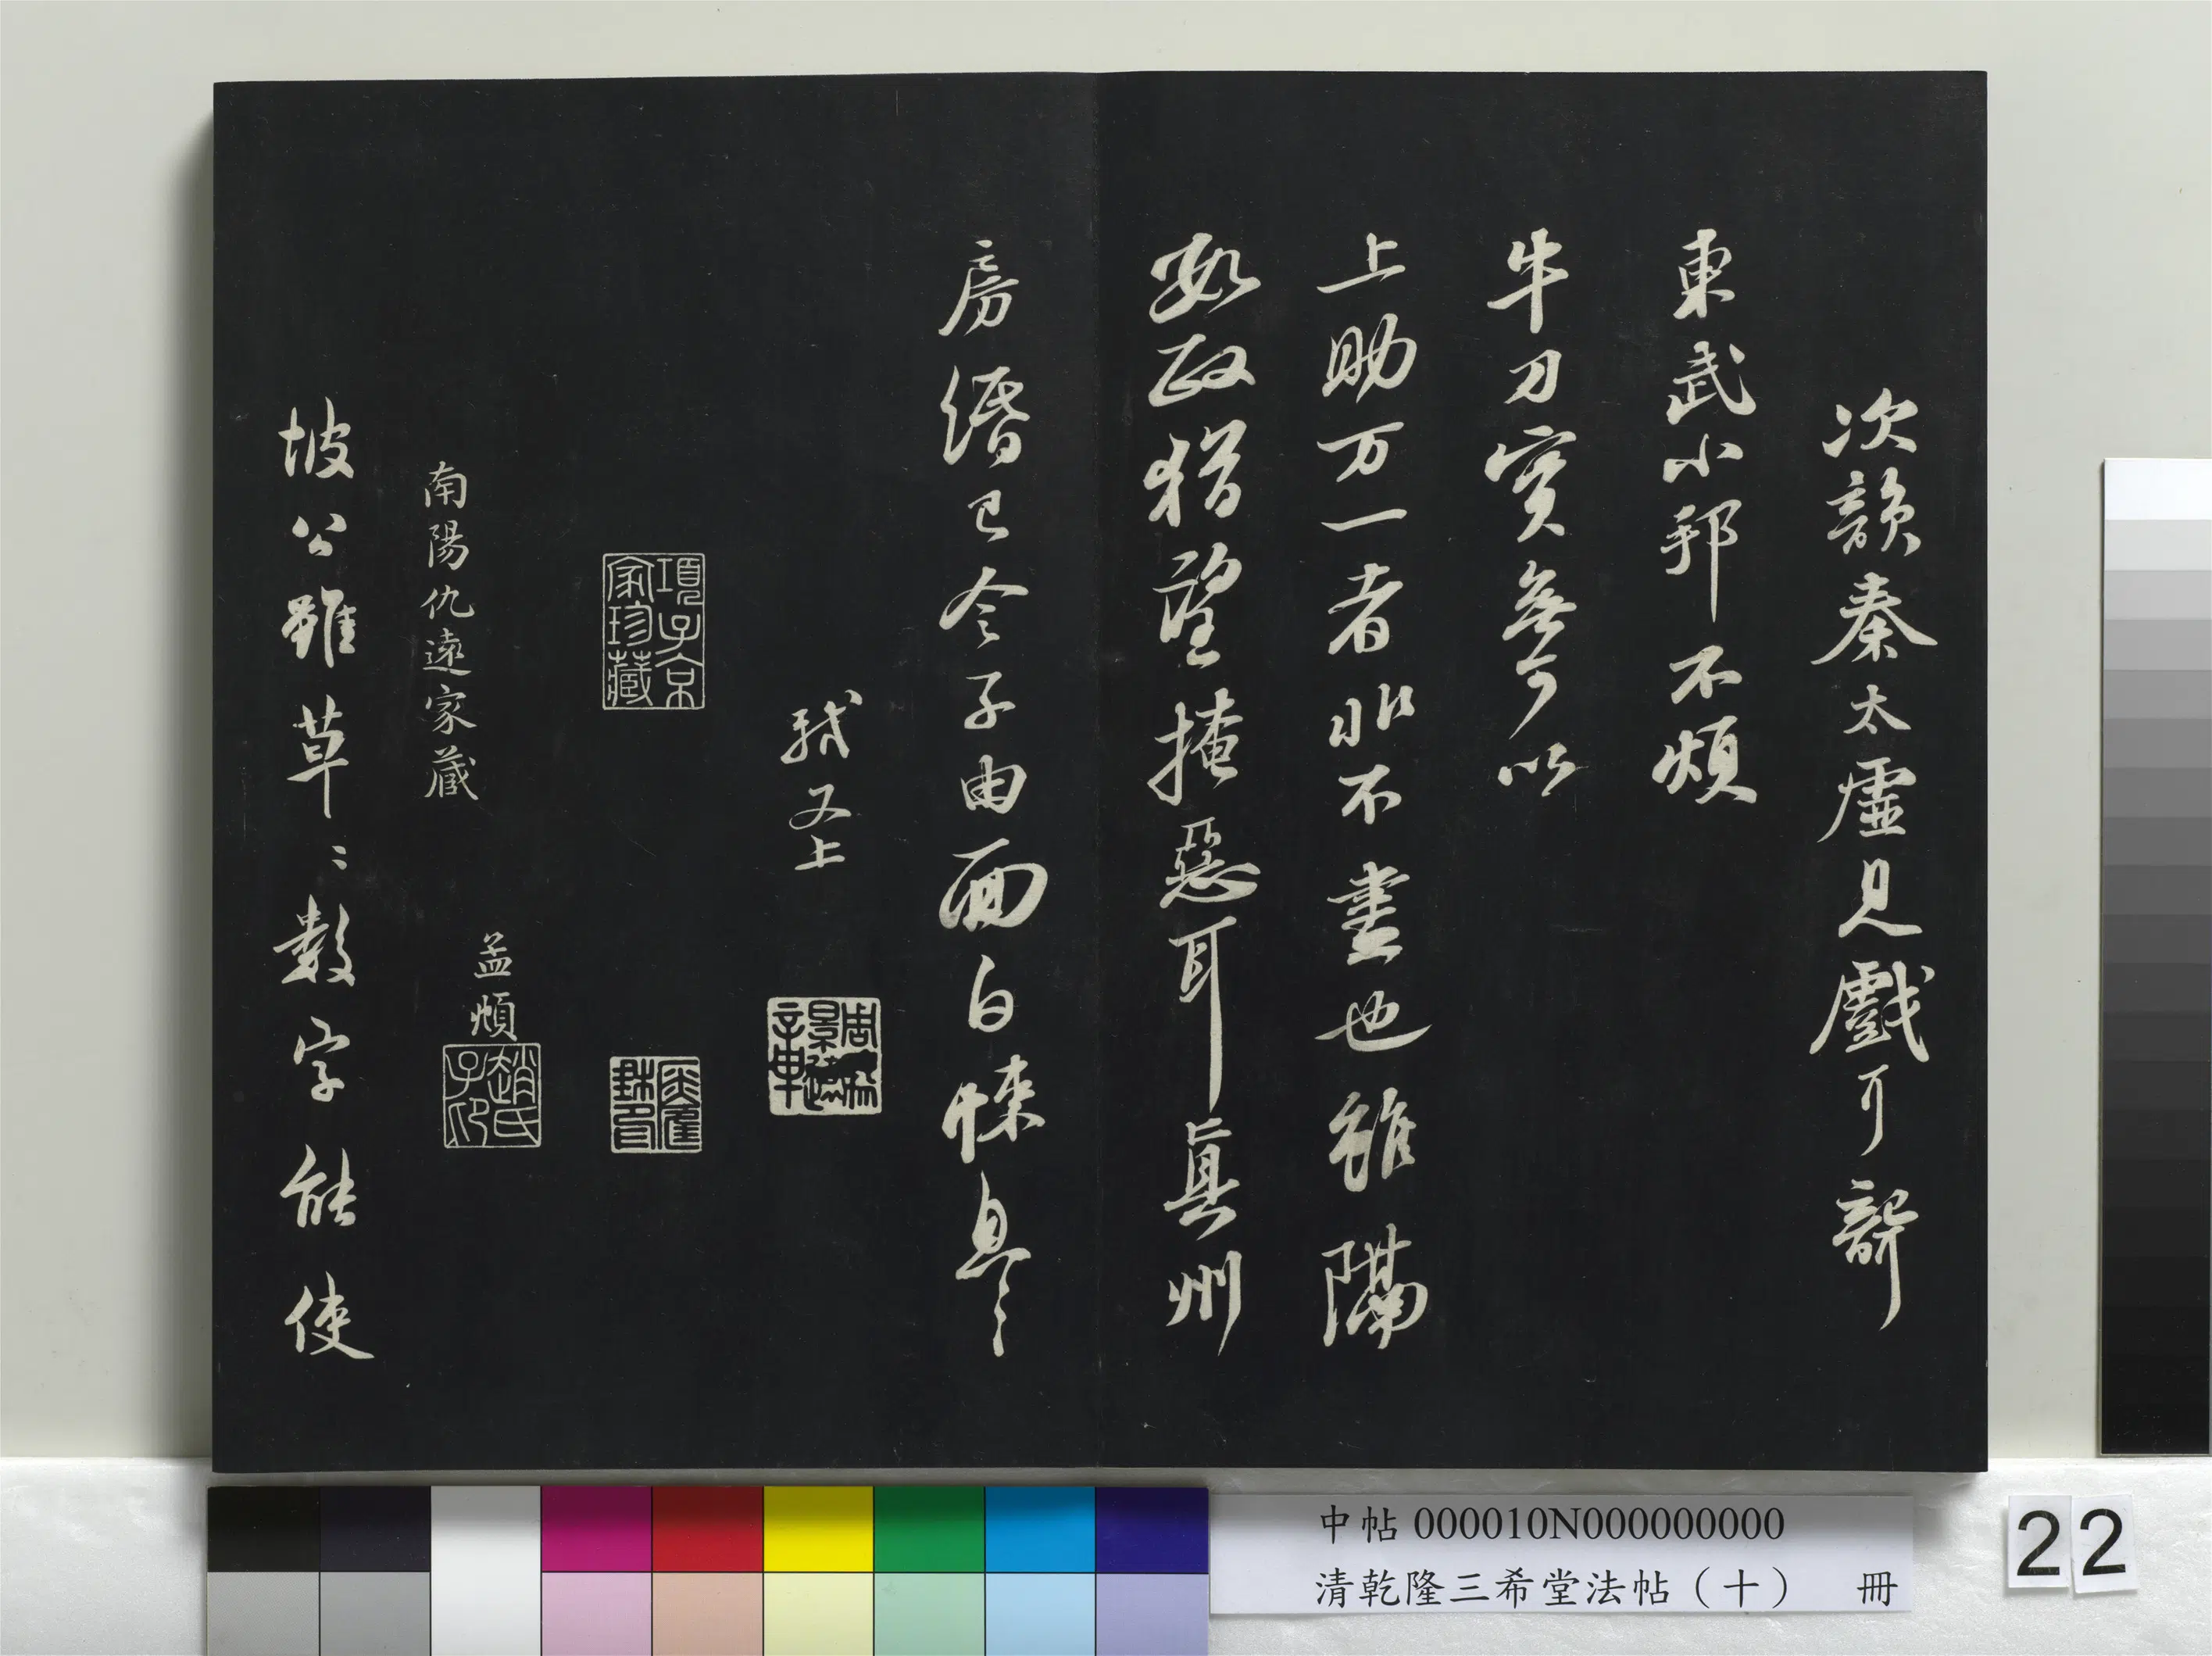 次韻秦太虛見戲耳聾
東武小邦不煩
牛刀實無可以
上助万一者非不盡也雖隔
數政猶望掩惡耳真州
房緡已令子由面白悚息之
軾又上
項子京家珍藏
南陽仇遠家藏
孟頫
趙氏子昂
坡公雖草〻數字能使
中帖 000010N000000000
清乾隆三希堂法帖（十） 冊
22